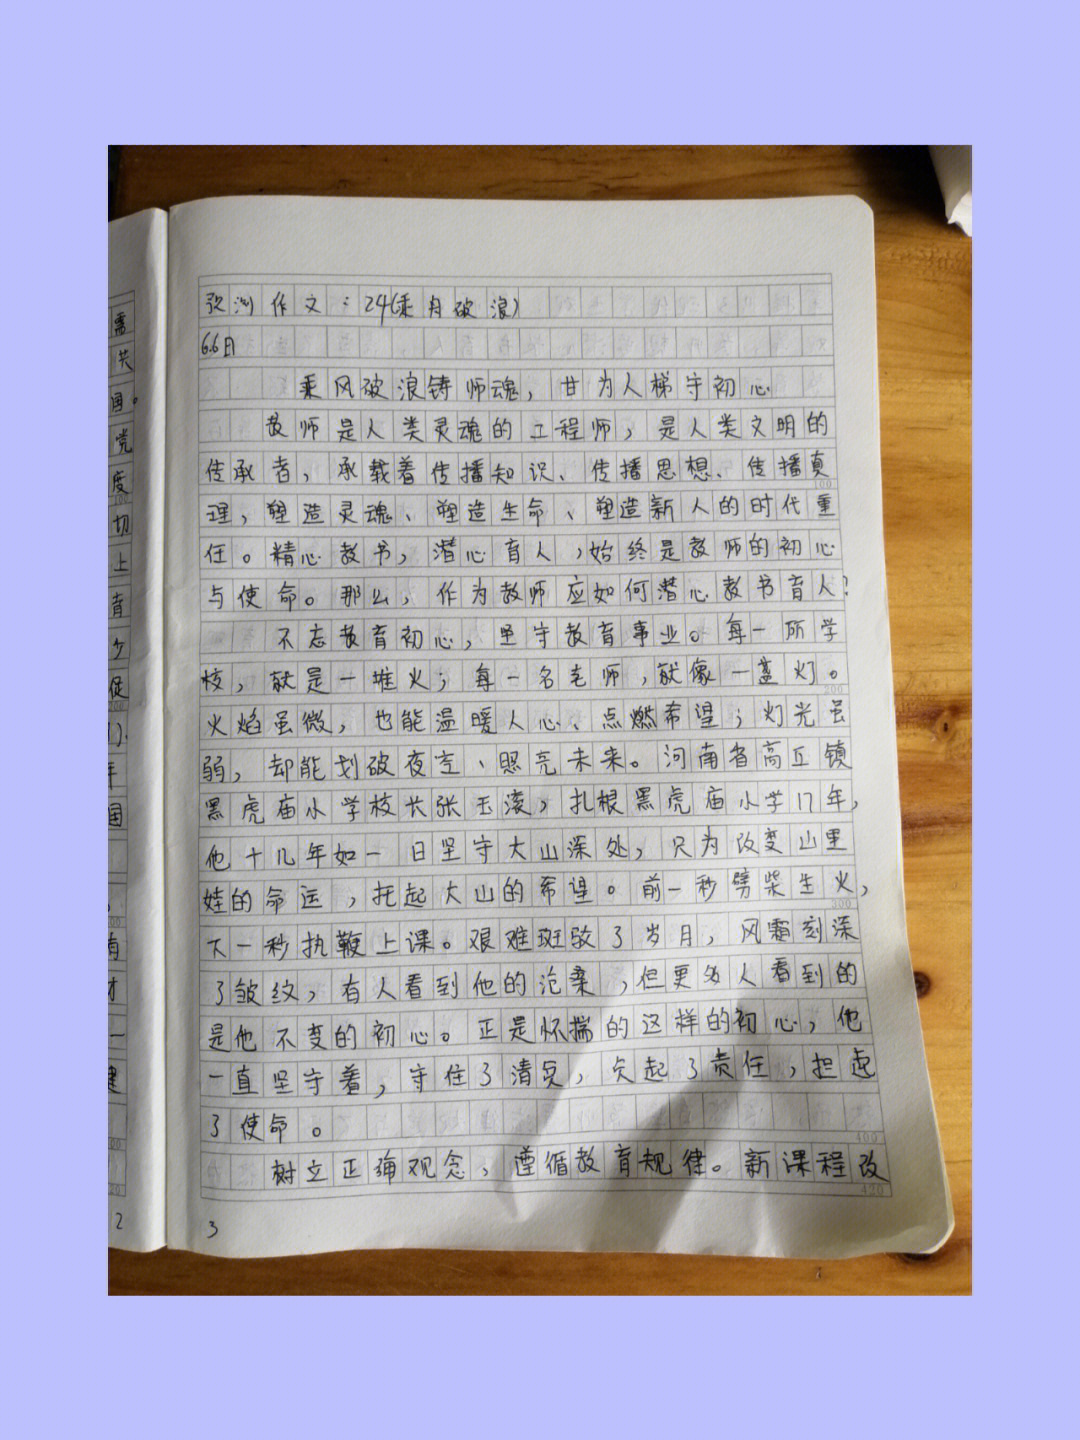 作文：24(乘月破浪)
6.6日
乘风破浪铸师魂，甘为人梯守初心
教师是人类灵魂的工程师，是人类文明的
传承者，承载着传播知识、传播思想、传播真
理，塑造灵魂、塑造生命、塑造新人的时代重
任。精心教书，潜心育人，始终是教师的初心
与使命。那么，作为教师应如何潜心教书育人？
不忘教育初心，坚守教育事业。每一所学
校，就是一堆火；每一名老师，就像一盏灯。
火焰虽微，也能温暖人心、点燃希望；灯光虽
弱，却能划破夜空、照亮未来。河南省高丘镇
黑虎庙小学校长张玉滚，扎根黑虎庙小学17年，
他十几年如一日坚守大山深处，只为改变山里
娃的命运，托起大山的希望。前一秒劈柴生火，
下一秒执鞭上课。艰难斑驳了岁月，风霜刻深
了皱纹，有人看到他的沧桑，但更多人看到的
是他不变的初心。正是怀揣的这样的初心，他
一直坚守着，守住了清贫，负起了责任，担起
了使命。
树立正确观念，遵循教育规律。新课程改
3
需
共
国。
党
度
切
上
育
促
年
国
才
一
建
2
100
200
300
400
420